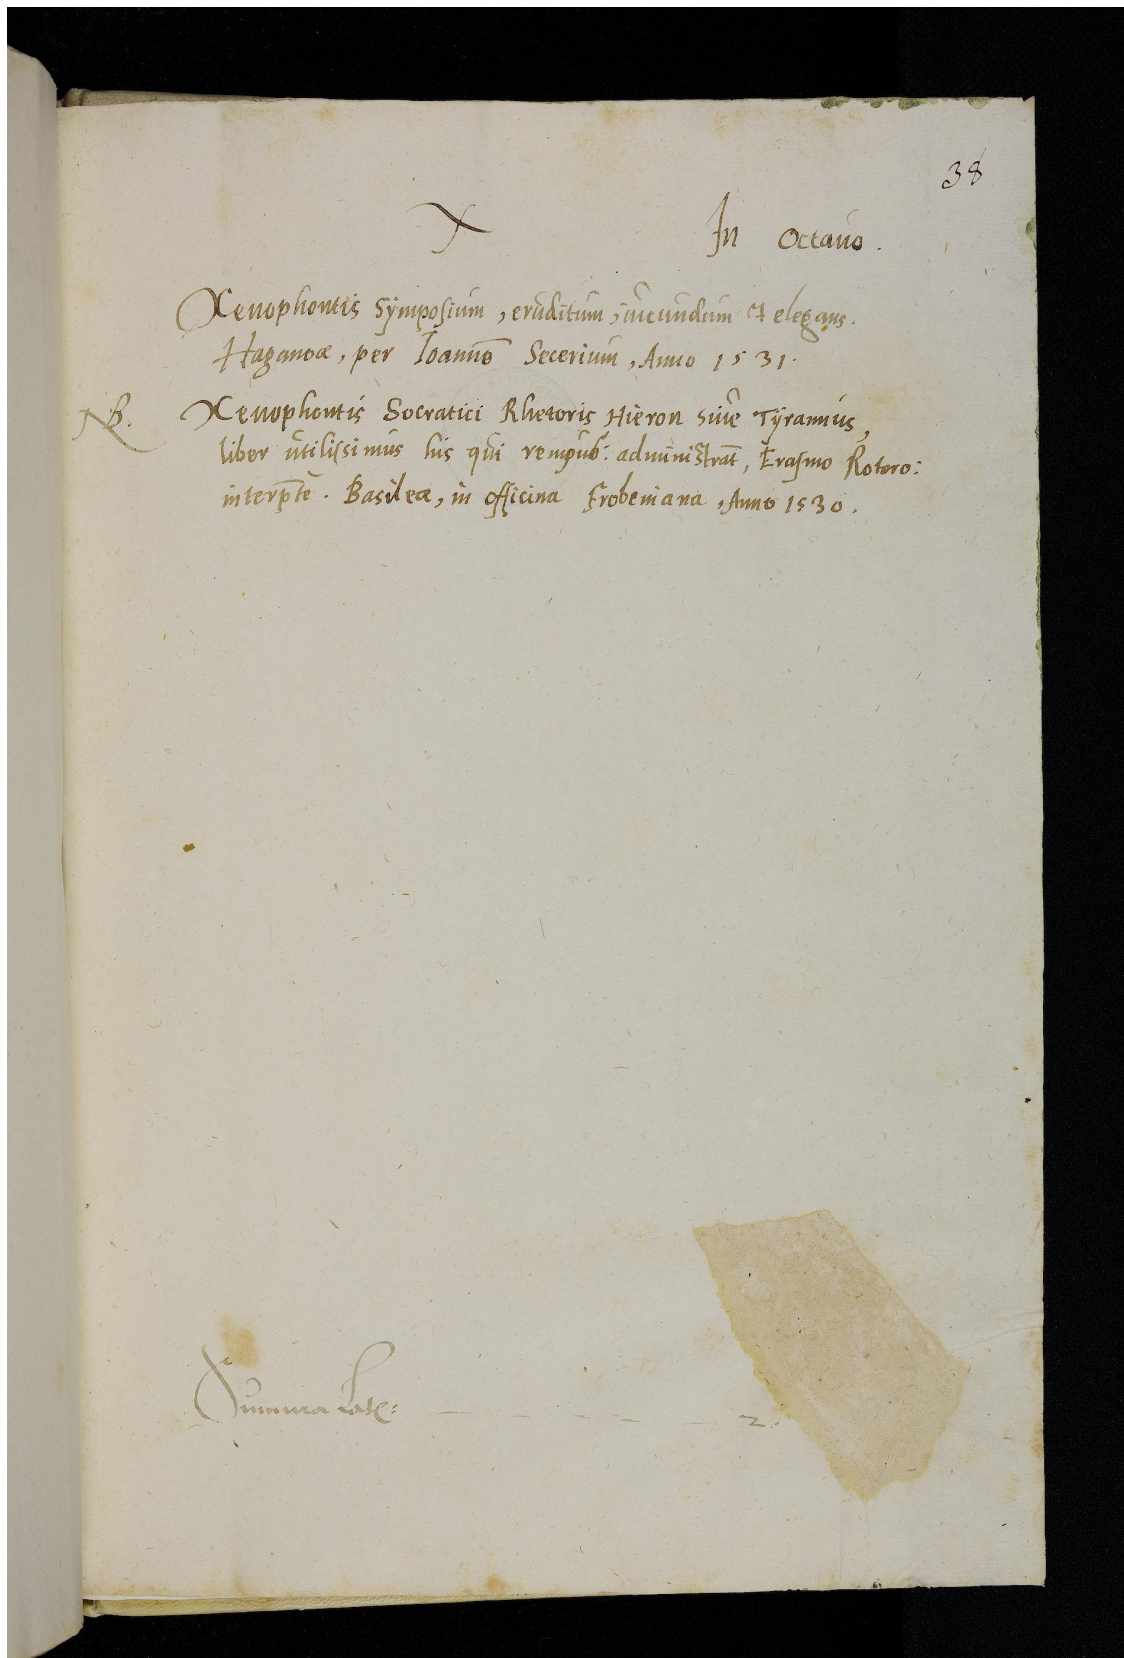 38
X In Octauo.
Xenophontis Symposium, eruditum, iucundum et elegans.
Haganoæ, per Ioannē Secerium, Anno 1531.
NB. Xenophontis Socratici Rhetoris Hieron siue Tÿrannus,
liber utilissimus his qui rempub: administrāt, Erasmo Rotero:
interp̄te. Basileæ, in officina Frobeniana, Anno 1530.
Summa Late: — — — — — — 2.